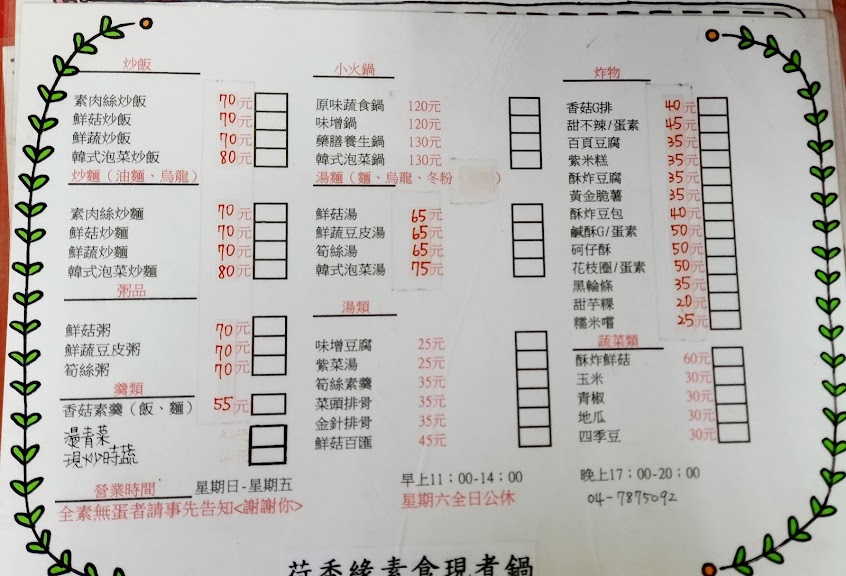 炒飯
素肉絲炒飯 70元
鮮菇炒飯 70元
鮮蔬炒飯 70元
韓式泡菜炒飯 80元
炒麵（油麵、烏龍）
素肉絲炒麵 70元
鮮菇炒麵 70元
鮮蔬炒麵 70元
韓式泡菜炒麵 80元
粥品
鮮菇粥 70元
鮮蔬豆皮粥 70元
筍絲粥 70元
羹類
香菇素羹（飯、麵） 55元
燙青菜
現炒時蔬
小火鍋
原味蔬食鍋 120元
味增鍋 120元
藥膳養生鍋 130元
韓式泡菜鍋 130元
湯麵（麵、烏龍、冬粉 ）
鮮菇湯 65元
鮮蔬豆皮湯 65元
筍絲湯 65元
韓式泡菜湯 75元
湯類
味增豆腐 25元
紫菜湯 25元
筍絲素羹 35元
菜頭排骨 35元
金針排骨 35元
鮮菇百匯 45元
炸物
香菇G排 40元
甜不辣/蛋素 45元
百頁豆腐 35元
紫米糕 35元
酥炸豆腐 35元
黃金脆薯 35元
酥炸豆包 40元
鹹酥G/蛋素 50元
蚵仔酥 50元
花枝圈/蛋素 50元
黑輪條 35元
甜芋粿 20元
糯米腸 25元
蔬菜類
酥炸鮮菇 60元
玉米 30元
青椒 30元
地瓜 30元
四季豆 30元
營業時間 星期日-星期五 早上11：00-14：00 晚上17：00-20：00
全素無蛋者請事先告知<謝謝你> 星期六全日公休 04-7875092
荷香緣素食現煮鍋